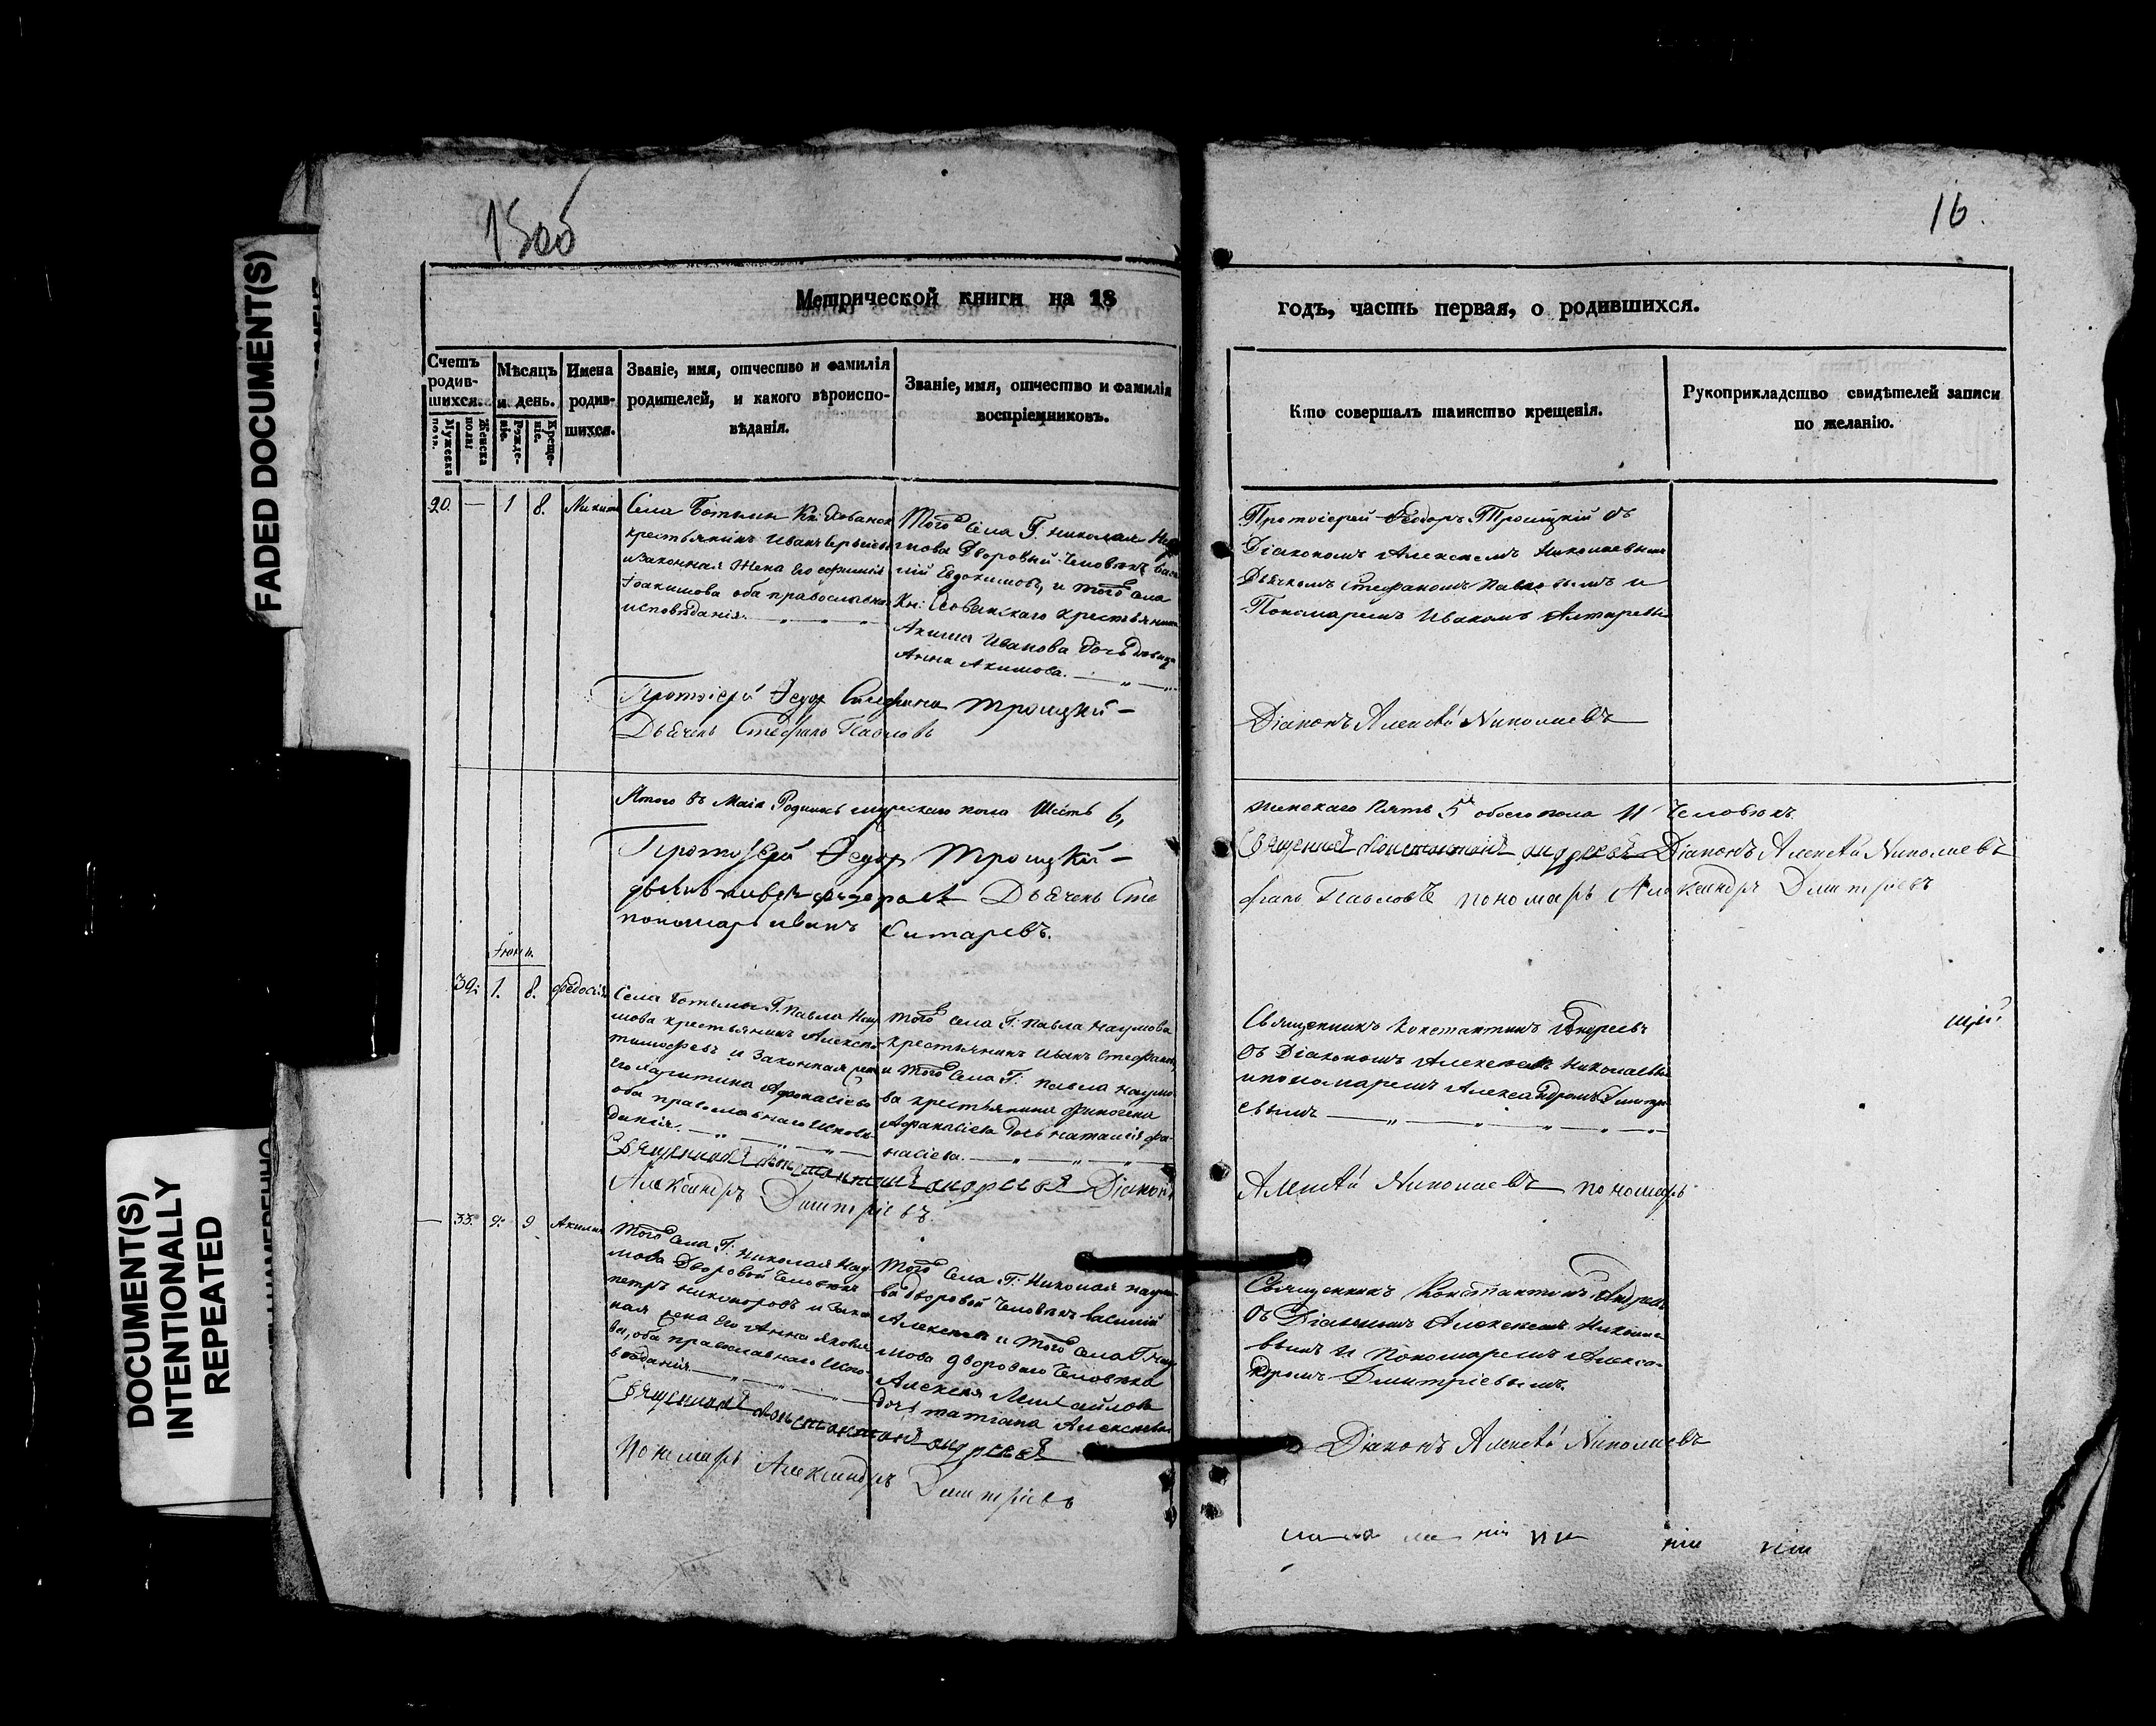 FADED DOCUMENT(S)
DOCUMENT(S)
INTENTIONALLY
REPEATED
15об
16.
Метрической книги на 18
годъ, часть первая, о родившихся.
Счетъ
родив-
шихся.
Мужеска
полъ.
Женска
полъ
Мѣсяцъ
и день.
Рожде-
ніе.
Креще-
ніе.
Имена
родив-
шихся.
Званіе, имя, отчество и фамилія
родителей, и какого вѣроиспо-
вѣданія.
Званіе, имя, отчество и фамилія
воспріемниковъ.
Кто совершалъ таинство крещенія.
Рукоприкладство свидѣтелей записи
по желанію.
20. — 1 8.
Села Ботьмы Кн:
крестьянинъ Иванъ
и законная жена его
Іоакимова оба православнаго
исповѣданія.
Того села Г. Николая На
умова Дворовый человѣкъ
лій Евдокимовъ, и того села
Кн: Хованскаго крестьянина
Акима Иванова дочь девица
Анна Акимова.
Протоіерей Ѳеодоръ Троицкій съ
Діакономъ Алексеемъ Николаевымъ
Дьячкомъ Стефаномъ Павловымъ и
Пономаремъ Иваномъ
Протоіерей Ѳедор Троицкій
Дьячекъ Стефанъ Павловъ
Діаконъ Алексѣй Николаевъ
Итого въ Маіѣ Родилось мужескаго пола Шесть 6,
женскаго Пять 5 обоего пола 11 Человѣкъ.
Протоіерей Ѳедор Троицкій
Священникъ Константинъ Андреевъ Діаконъ Алексѣй Николаевъ
Дьячекъ Сте
фанъ Павловъ пономарь Александръ Димитріевъ
пономарь иванъ Ситаревъ.
Іюнь.
32: 1. 8. Федосія
Села Ботьмы Г. Павла Нау
мова крестьянинъ Алексѣй
тимофеевъ и законная жена
его Харитина Афонасіева
оба православнаго исповѣ-
данія.
того села Г. Павла Наумова
крестьянинъ Иванъ Стефановъ
и того села Г. Павла Наумо
ва крестьянина
Афанасіева дочь наталія Афа-
насіева.
Священникъ Константинъ Андреевъ
съ Діакономъ Алексеемъ Николаевымъ
и пономаремъ Александромъ Димитрі
евымъ
Священникъ Константинъ Андреевъ Діаконъ
Алексѣй Николаевъ пономарь
Александръ Димитріевъ.
— 33. 9. 9 Акилина
Того села Г. Николая Нау-
мова Дворовой Человѣкъ
петръ никоноровъ и закон
ная жена его Анна яковле
ва, оба православнаго испо-
вѣданія.
Того села Г. Николая Наумо
ва дворовой человѣкъ василій
Алексеевъ и того села Г. Нау
мова двороваго человѣка
Алексея Михайлова
дочь татіана Алексеева
Священникъ Константинъ Андреевъ
съ Діакономъ Алексеемъ Николае
вымъ и Пономаремъ Алексан
дромъ Димитріевымъ.
Священникъ Константинъ Андреевъ
Діаконъ Алексѣй Николаевъ
Пономарь Александръ Димитріевъ